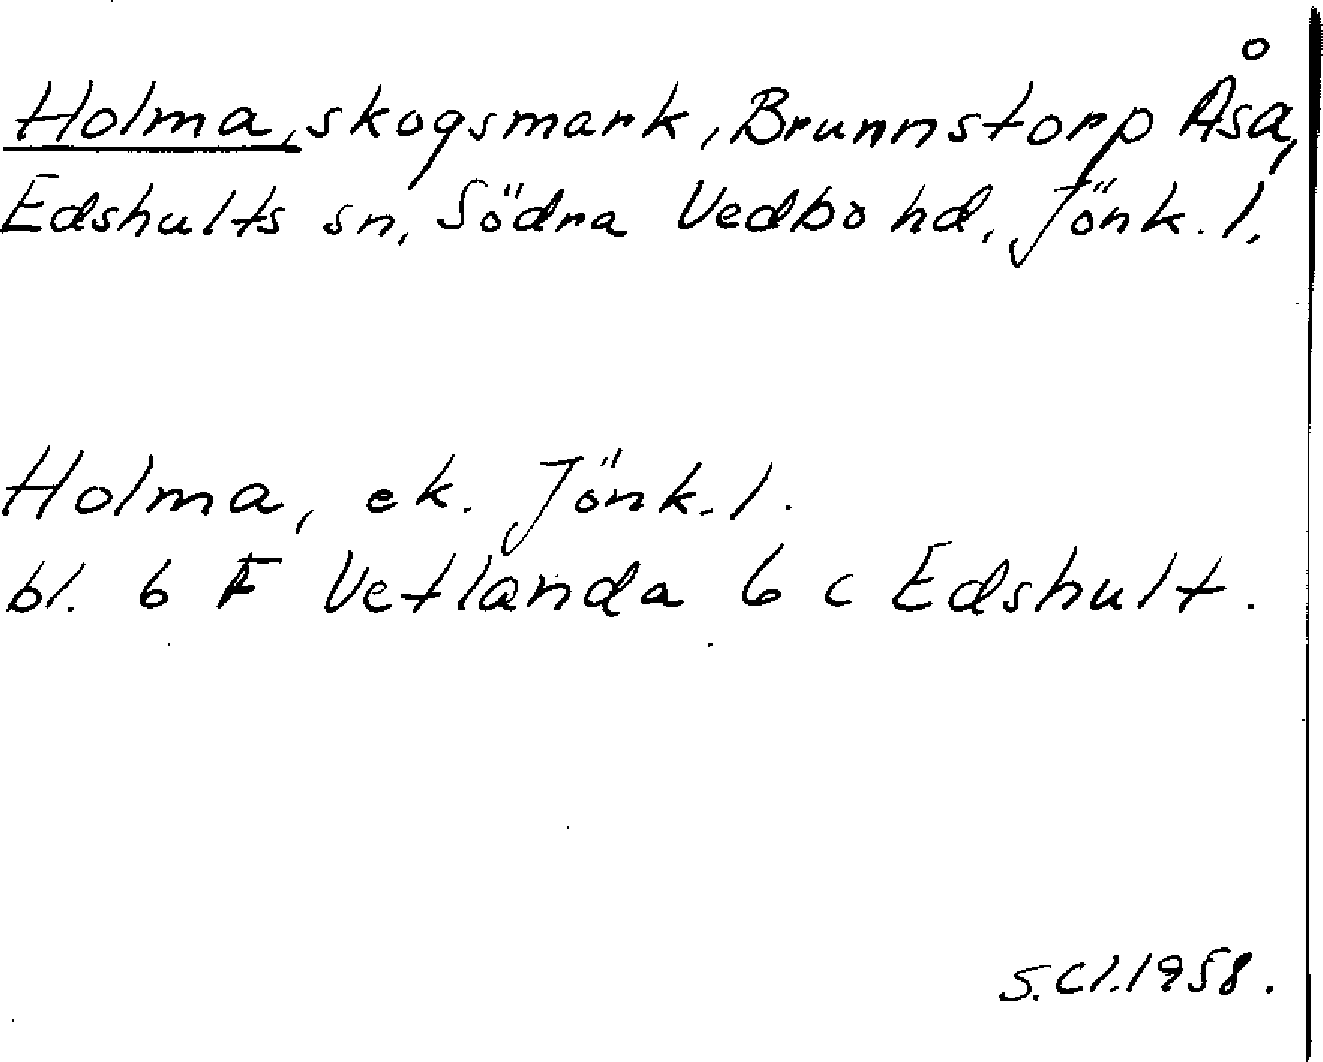 Holma, skogsmark, Brunnstorp Åsa,
Edshults sn, Södra Vedbo hd, Jönk. l.
Holma, ek. Jönk. l.
bl. 6 F Vetlanda 6 c Edshult.
S.Cl.1958.